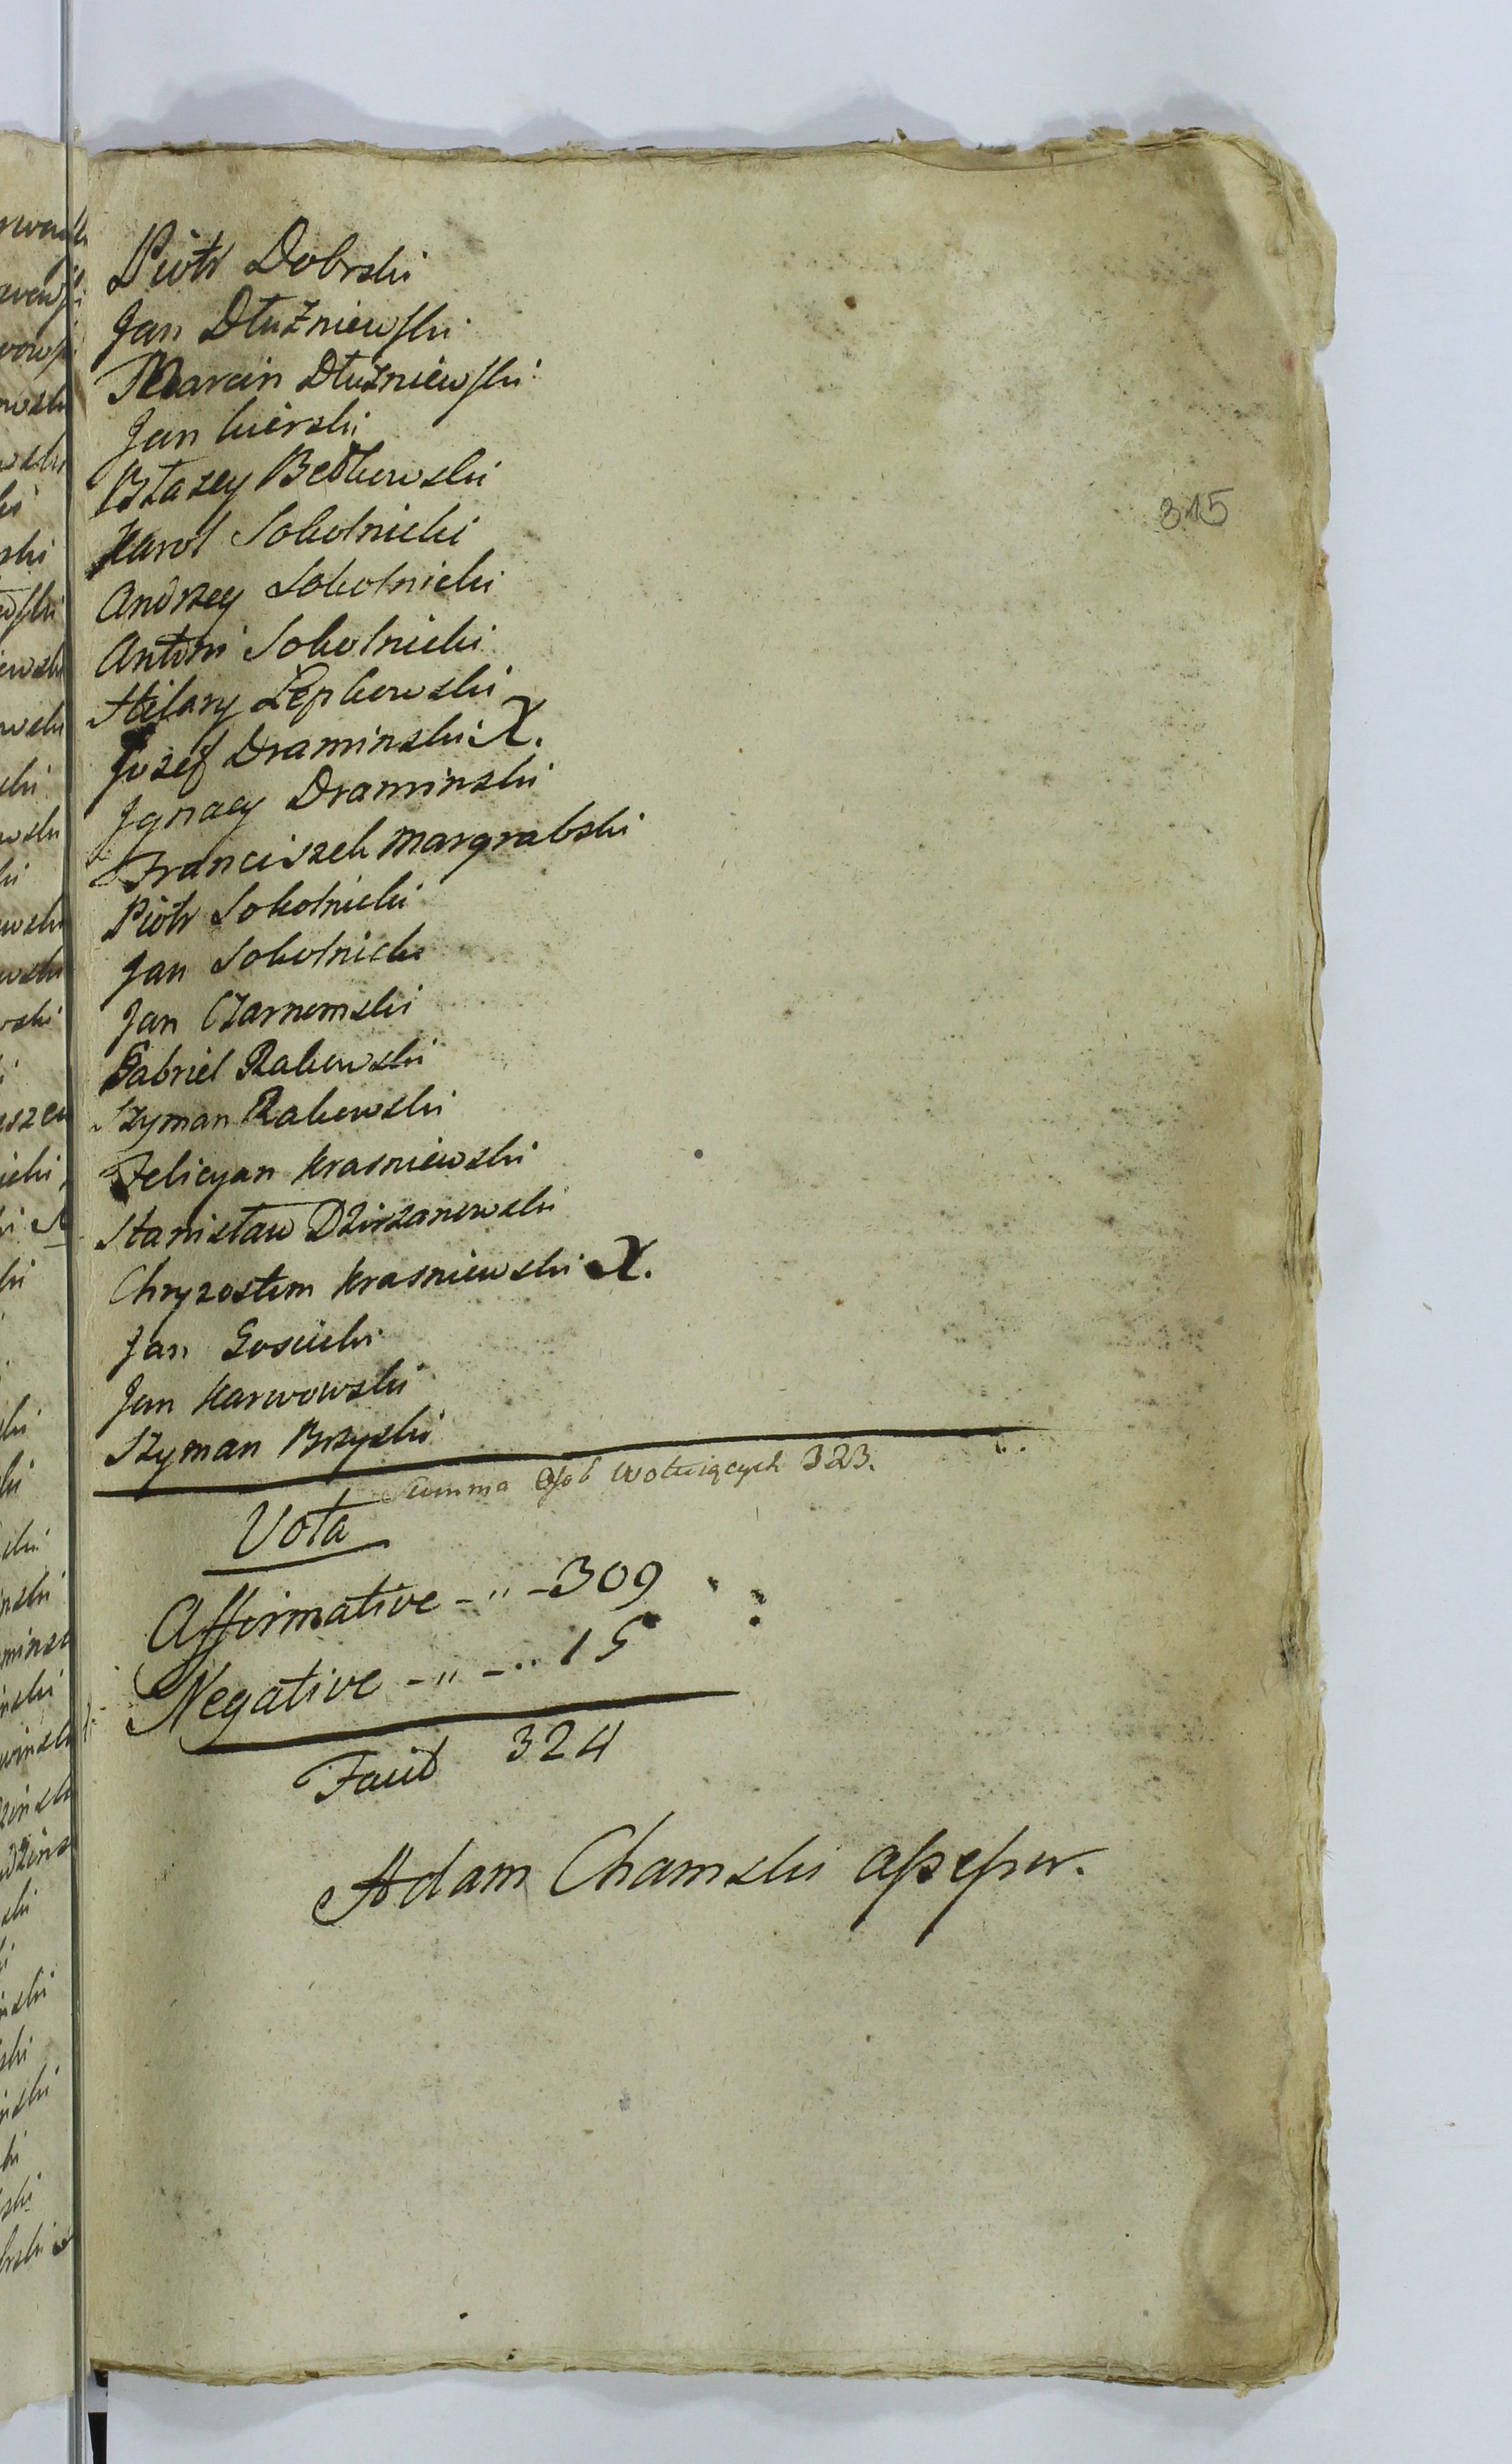 Piotr Dobrski
Jan Dłużniewski
Marcin Dłużniewski
Jan kierski
Błazey Bedkowski
Karol Sokolnicki
Andrzey Sokolnicki
Antoni Sokolnicki
Hilary Lępkowski
Jozef Draminski X.
Jgnacy Draminski
Franciszek Margrabski
Piotr Sokolnicki
Jan Sokolnicki
Jan Czarnomski
Gabriel Rakowski
Szyman Rakowski
Felicyan krasniewski
Stanisław Dzirzanowski
Chryzostom krasniewski X.
Jan Gosicki
Jan Karwowski
Szyman Brzyski
Summa Osob Wotuiących 323.
Vota
Affirmative -"- 309
Negative -"-" 15
Facit 324
Adam Chamski
315